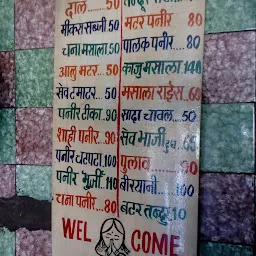 दाल......50
मीक्स सब्जी...50
चना मसाला 50
आलु मटर...50
सेव टमाटर...50
पनीर टीका..90
शाही पनीर..90
पनीर चटपटा.100
पनीर भुर्जी.110
चना पनीर...80
मटर पनीर 80
पालक पनीर....80
काजु मसाला 140
मसाला राईस.60
सादा चावल..50
सेव भाजी दुध..60
पुलाव
बीरयानी.....100
बटर तन्दुर 10
WEL COME